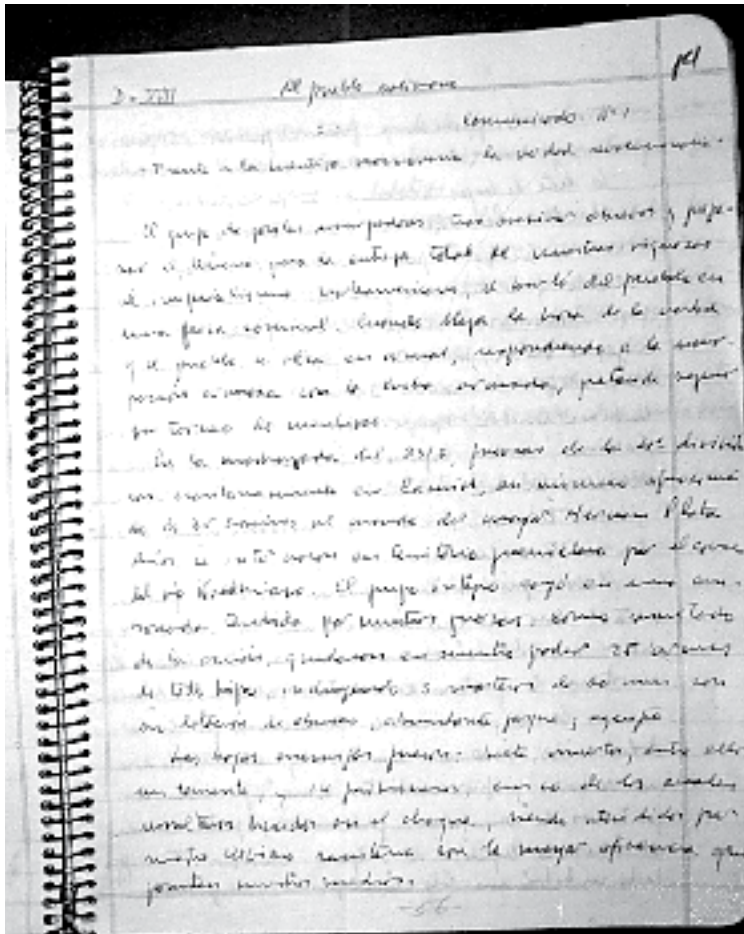 D. XVII Al pueblo boliviano
Comunicado No 1
Frente a la mentira reaccionaria, la verdad revolucionaria.
El grupo de gorilas usurpadores, tras asesinar obreros y prepa-
rar el terreno para la entrega total de nuestras riquezas
al imperialismo norteamericano, se burló del pueblo en
una farsa comicial. Cuando llega la hora de la verdad
y el pueblo se alza en armas, respondiendo a la usur-
pación armada con la lucha armada, pretende seguir
su torneo de mentiras.
En la madrugada del 23/3, fuerzas de la 4a división
con acantonamiento en Camiri, en número aproximado
de 35 hombres al mando del mayor Hernán Plata
Ríos se internaron en territorio guerrillero por el cauce
del río Ñacahuaso. El grupo íntegro cayó en una em-
boscada tendida por nuestras fuerzas. Como resultado
de la acción, quedaron en nuestro poder 25 armas
de todo tipo, incluyendo 3 morteros de 60 mm con
su dotación de obuses, abundante parque y equipo.
Las bajas enemigas fueron: siete muertos, entre ellos
un teniente, y 14 prisioneros, cinco de los cuales
resultaron heridos en el choque, siendo atendidos por
nuestro servicio sanitario con la mayor eficiencia que
permiten nuestros medios.
-56-